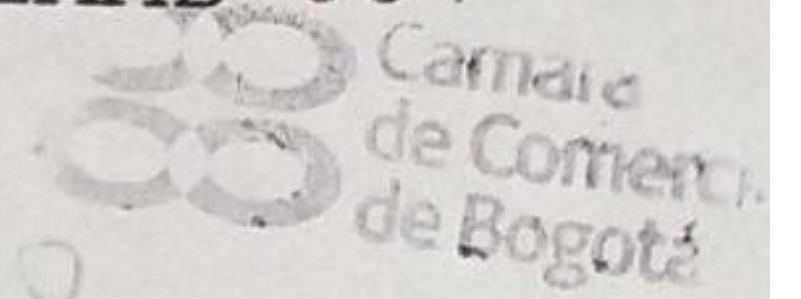 Camara
de Comerci
de Bogotá